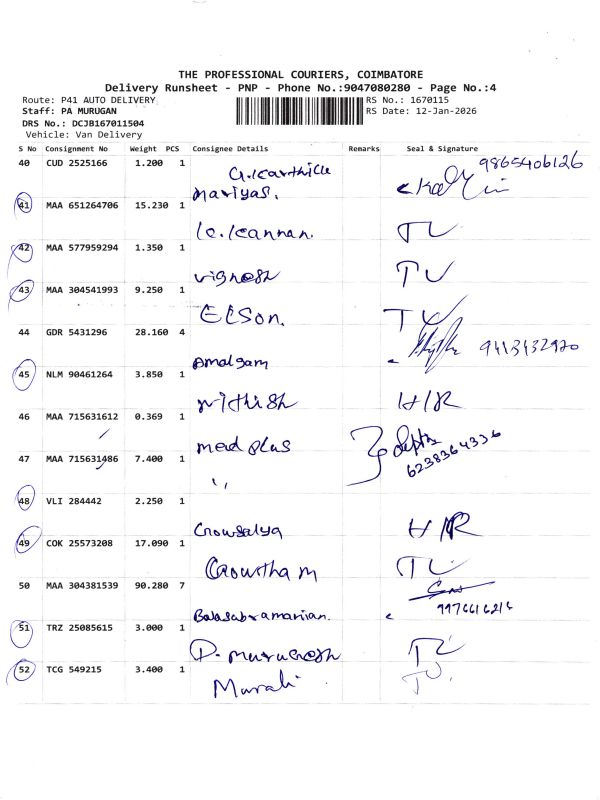 THE PROFESSIONAL COURIERS, COIMBATORE
Delivery Runsheet - PNP - Phone No.:9047080280 - Page No.:4
Route: P41 AUTO DELIVERY RS No.: 1670115
Staff: PA MURUGAN RS Date: 12-Jan-2026
DRS No.: DCJB167011504
Vehicle: Van Delivery
S No Consignment No Weight PCS Consignee Details Remarks Seal & Signature
40 CUD 2525166 1.200 1 G.Karthick 9865406126
41 MAA 651264706 15.230 1 Mariyas.
42 MAA 577959294 1.350 1 K.Kannan. TU
43 MAA 304541993 9.250 1 vignesh TU
44 GDR 5431296 28.160 4 Elson. TU
45 NLM 90461264 3.850 1 Amalgam 9413432920
46 MAA 715631612 0.369 1 Nithish H/R
47 MAA 715631486 7.400 1 med plus 6238364336
48 VLI 284442 2.250 1 ''
49 COK 25573208 17.090 1 Gowsalya H/R
50 MAA 304381539 90.280 7 Gowtham TU
51 TRZ 25085615 3.000 1 Balasubramanian. 9976616216
52 TCG 549215 3.400 1 P. Murugesh TU
Murali TU.